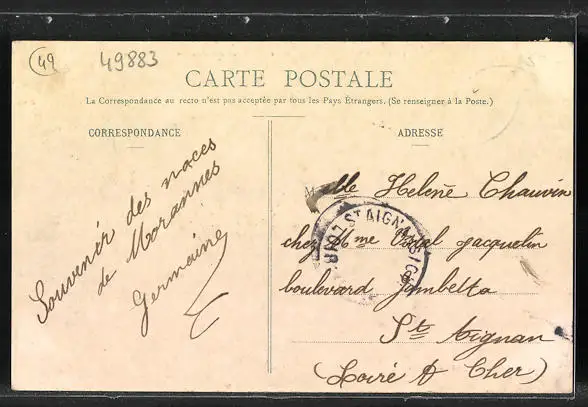 49
49883
CARTE POSTALE
La Correspondance au recto n'est pas acceptée par tous les Pays Étrangers. (Se renseigner à la Poste.)
CORRESPONDANCE
Souvenir des noces
de Morannes
Germaine
ADRESSE
Mlle Helene Chauvin
chez Mme Jacquelin
boulevard Gambetta
St Aignan
(Loire & Cher)
ST AIGNAN